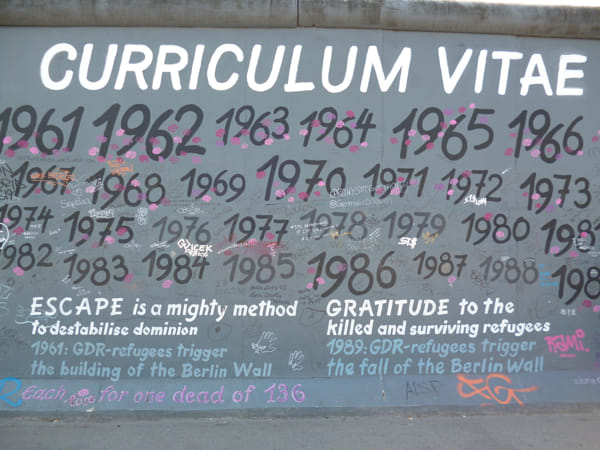 CURRICULUM VITAE
1961 1962 1963 1964 1965 1966
1967 1968 1969 1970 1971 1972 1973
1974 1975 1976 1977 1978 1979 1980 1981
1982 1983 1984 1985 1986 1987 1988 198
ESCAPE is a mighty method
to destabilise dominion
1961: GDR-refugees trigger
the building of the Berlin Wall
GRATITUDE to the
killed and surviving refugees
1989: GDR-refugees trigger
the fall of the Berlin Wall
Each for one dead of 136